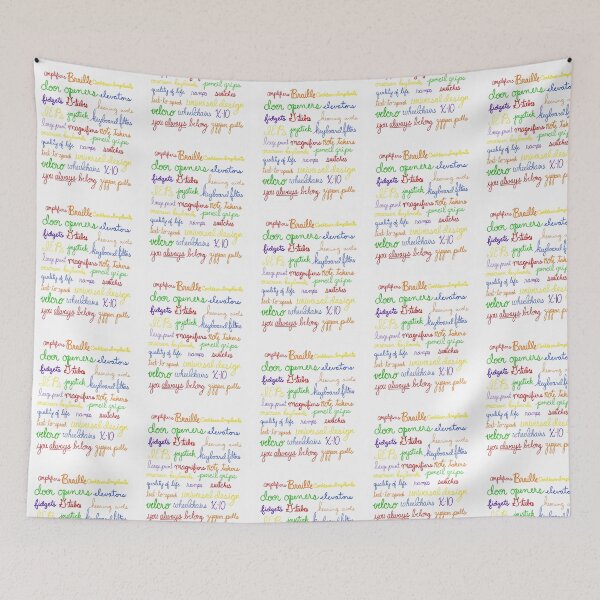 amplifiers Braille Cochlear Implants
door openers elevators
fidgets G-tubes hearing aids
I.E.P.s joystick keyboard filters
large print magnifiers note takers
pencil grips
quality of life ramps switches
text to speech universal design
velcro wheelchairs X-10
you always belong zipper pulls